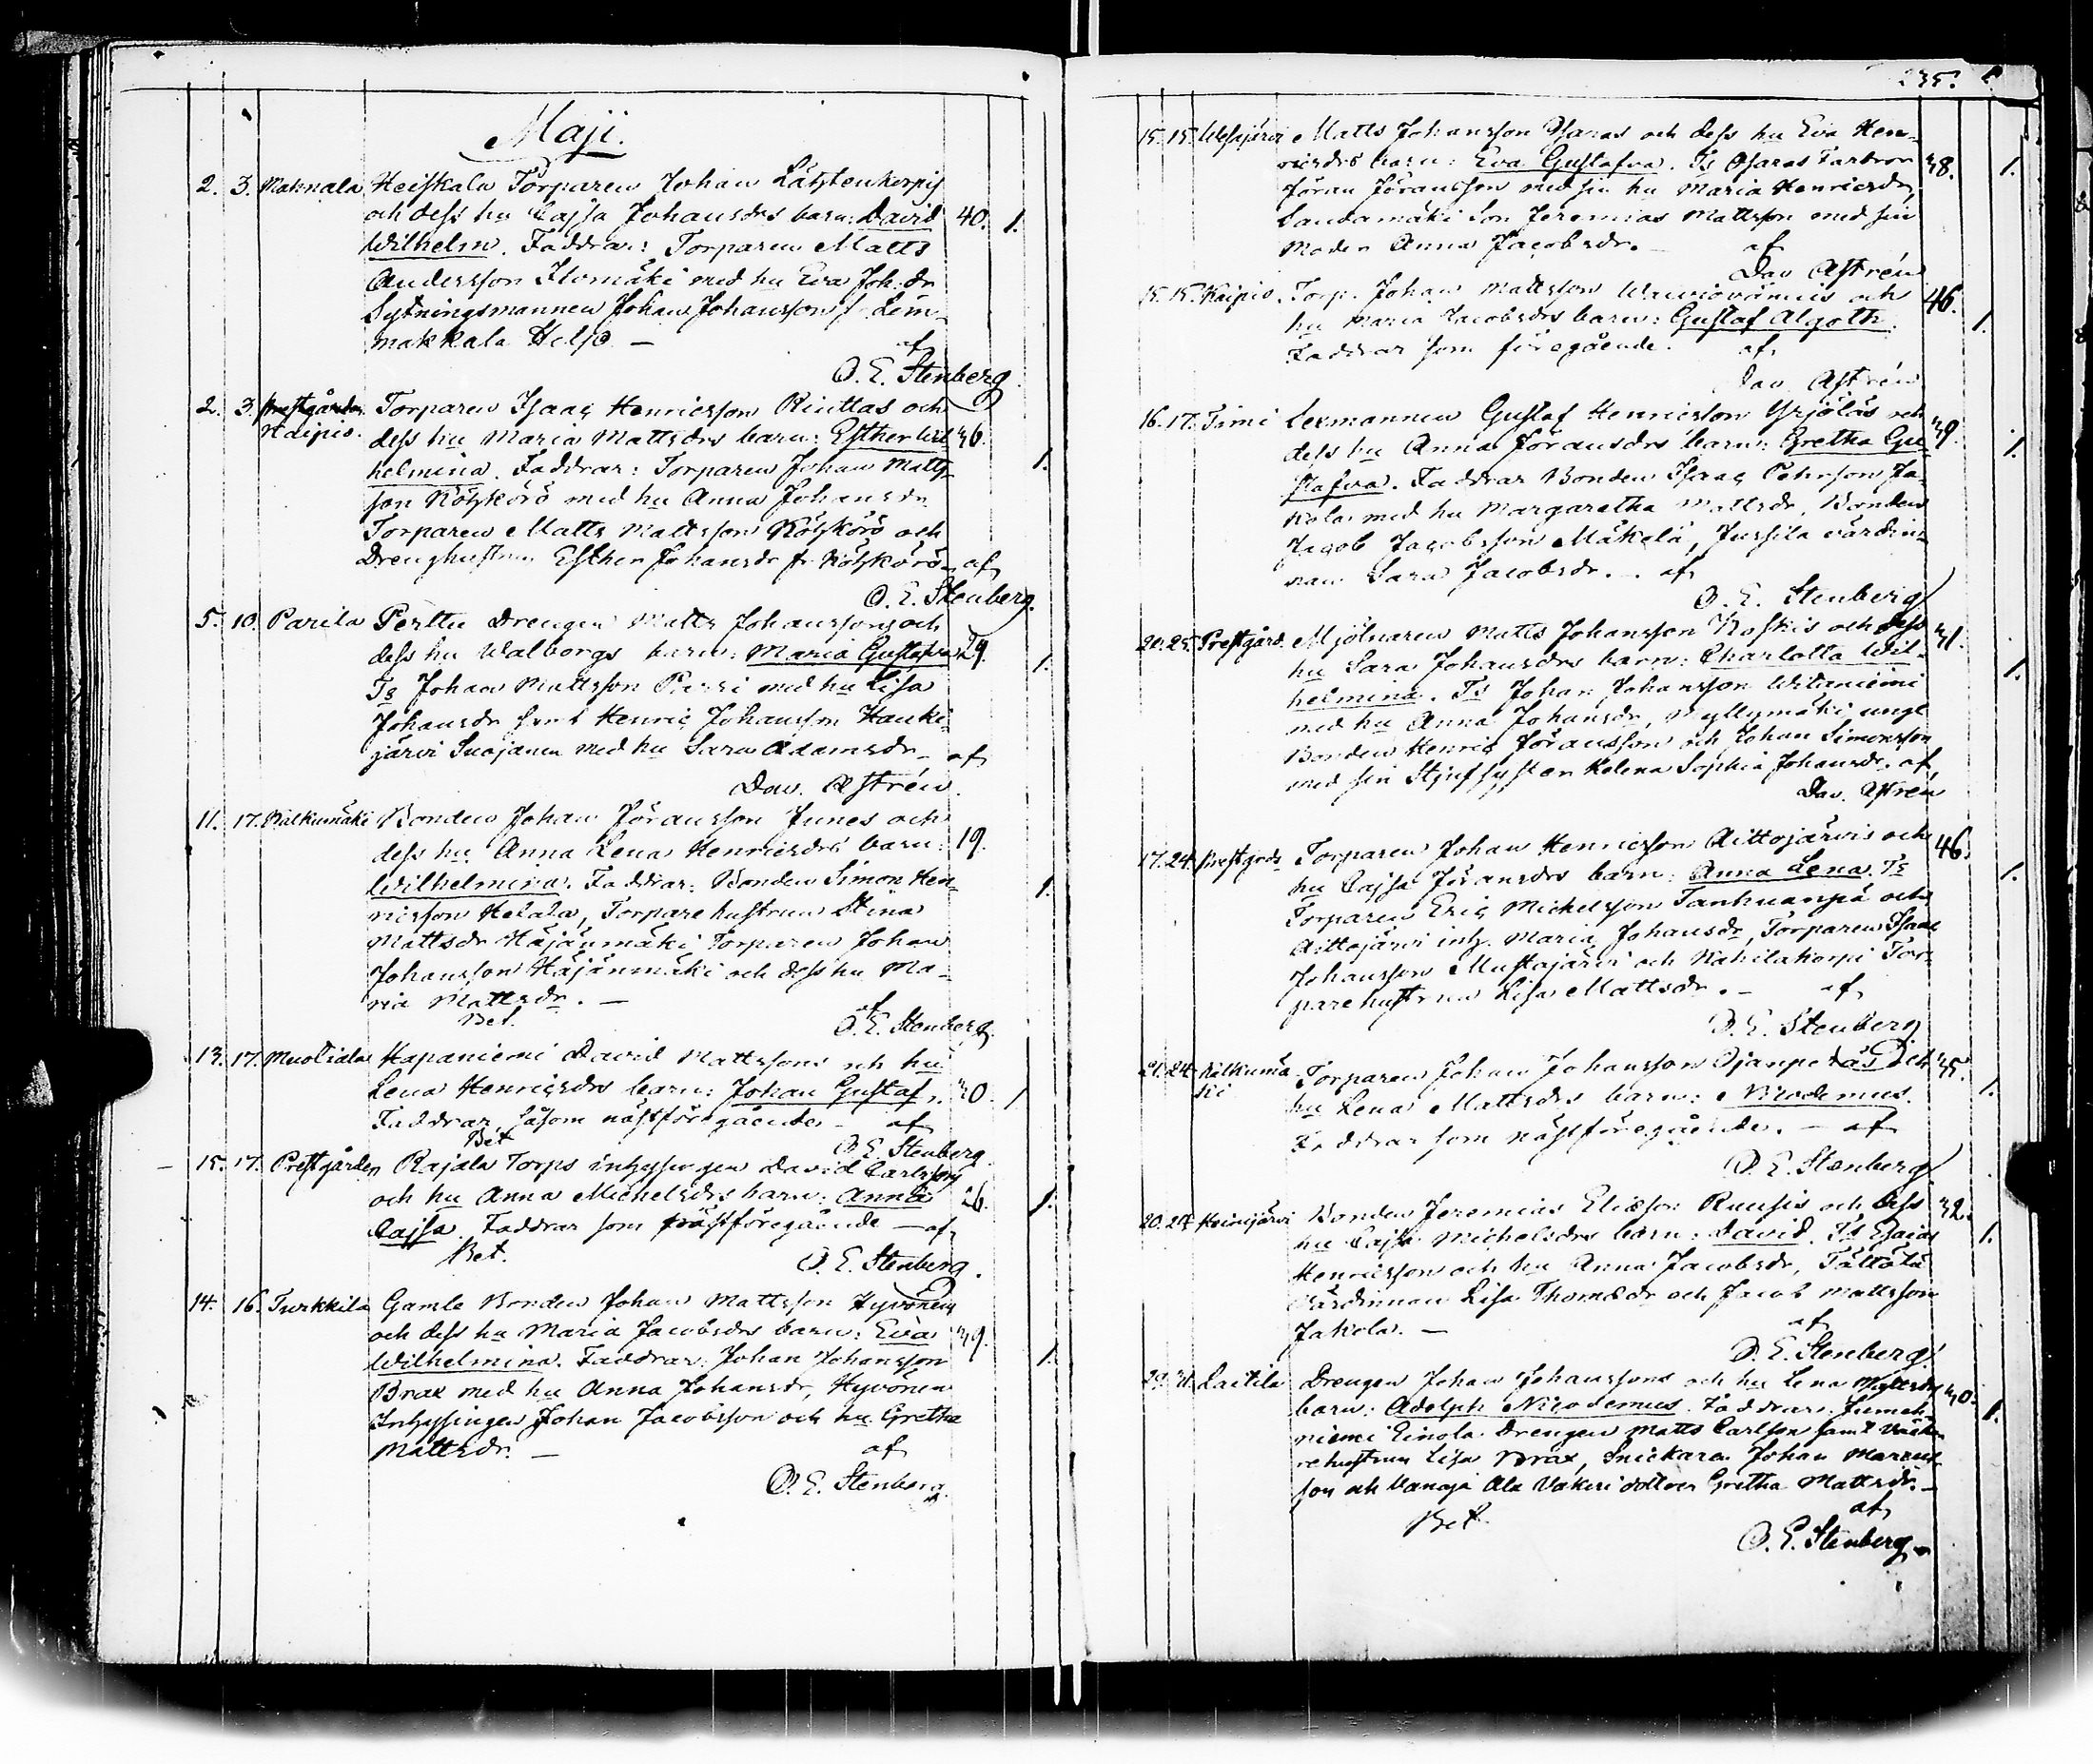 Maji.
2. 3. Maknala Heiskala Torparen Johan Lätzlenkorpis
och dess hu Cajsa Johansdrs barn: David 40. 1.
Wilhelm. Faddrar: Torparen Matts
Andersson Ilomäki med hu Eva Joh:dr
Sytningsmannen Johan Johansson f. Lem-
makkala Helso —
af
O. E. Stenberg
2. 3. Prestgården Torparen Isaac Henricsson Rinttas och
Kaipis. dess hu Maria Mattsdrs barn: Esther Wil 36.
helmina. Faddrar: Torparen Johan Matts 1.
son Kötzkörö med hu Anna Johansdr
Torparen Matts Mattsson Kötzkörö och
Drenghustrun Esther Johansdr fr. Kötzkörö — af
O. E. Stenberg.
5. 10. Parila Perttu Drengen Matts Johanssons och
dess hu Walborgs barn: Maria Gustafva 29. 1.
Ts Johan Mattsson Parri med hu Lisa
Johansdr samt Henric Johansson Hauki
järvi Suojanen med hu Sara Adamsdr — af
Dav. Astrén.
11. 17. Kälkumäki Bonden Johan Göransson Junes och
dess hu Anna Lena Henricsdrs barn: 19.
Wilhelmina. Faddrar: Bonden Simon Hen- 1.
ricsson Hekala, Torpare hustrun Stina
Mattsdr Käjänmäki Torparen Johan
Johansson Käjänmäki och dess hu Ma-
ria Mattsdr. —
Bet. af
O. E. Stenberg.
13. 17. Muotiala Hapaniemi David Mattssons och hu
Lena Henricsdrs barn: Johan Gustaf. 30. 1
Faddrar, såsom nästföregående — af
Bet O. E. Stenberg.
15. 17. Prestgården Rajala Torps inhysingen David Carlssons
och hu Anna Michelsdrs barn: Anna 26. 1.
Cajsa. Faddrar som nästföregående — af
Bet. O. E. Stenberg.
14. 16. Turkkila Gamle Bonden Johan Mattsson Hyvönens
och dess hu Maria Jacobsdrs barn: Eva 39.
Wilhelmina. Faddrar: Johan Johansson 1.
Brax med hu Anna Johansdr, Hyvönen
Inhysingen Johan Jacobsson och hu Gretha
Mattsdr. — af
O. E. Stenberg.
235.
15. 15. Wesajärvi Matts Johansson Osaras och dess hu Eva Hen-
ricsdrs barn: Eva Gustafva. Ts Osaras Farbror 38. 1.
Jöran Göransson med sin hu Maria Henricsdr,
Saudamäki Son Jeremias Mattsson med sin
Moder Anna Jacobsdr. — af
Dav Astrén
15. 15. Kaipio. Torp. Johan Mattsson och 46.
hu Maria Jacobsdrs barn: Gustaf Algoth. 1.
Faddrar som föregående. af
Dav Astrén
16. 17. Timi Lexmannen Gustaf Henricsson Yrjöläs och 39.
dess hu Anna Göransdrs barn: Gretha Gu 1.
stafva. Faddrar Bonden Isaac Pehrsson Ja-
kola med hu Margaretha Mattsdr, Bonden
Jacob Jacobsson Mäkelä, Jussila värdin-
nan Sara Jacobsdr. — af
O. E. Stenberg
20. 25. Prestgård. Mjölnaren Matts Johansson Koskis och dess 31.
hu Sara Johansdrs barn: Charlotta Wil- 1.
helmina. Ts Johan Johansson Witaniemi
med hu Anna Johansdr, Myllymäki ungl
Bonden Henric Göransson och Johan Simonsson
med sin Stjufsyster Helena Sophia Johansdr. af
Dav. Astrén
17. 24. Prestgrds Torparen Johan Henricsson Aittojärvis och 46.
hu Cajsa Göransdrs barn: Anna Lena. Ts 1.
Torparen Eric Michelsson Tanhuanpä och
Aittojärvi inh. Maria Johansdr, Torparen Isaac
Johansson Mustajärvi och Kahilakorpi Tor-
parehustrun Lisa Mattsdr. — af
O. E. Stenberg
21. 24. Kälkumä Torparen Johan Johansson Ojanperäs och 35.
ki hu Lena Mattsdrs barn: Nicodemus. 1.
Faddrar som nästföregående. — af
O. E. Stenberg
20. 24. Heinijärvi Bonden Jeremias Eliæson Ruusis och dess 32.
hu Cajsa Michelsdrs barn: David. Ts Esaias 1.
Henricsson och hu Anna Jacobsdr, Tättälä
Värdinnan Lisa Thomædr och Jacob Mattsson
Jakola. — af
O. E. Stenberg
29. 31. Laitila Drengen Johan Johanssons och hu Lena Mattsdrs 30.
barn: Adolph Nicodemus. Faddrar: Jumeh- 1.
niemi Einola Drengen Matts Carlsson samt
rehustrun Lisa Brax, Snickaren Johan Marcus
son och Vanaja Ala Vakeri dottren Gretha Mattsdr. —
Bet. af
O. E. Stenberg